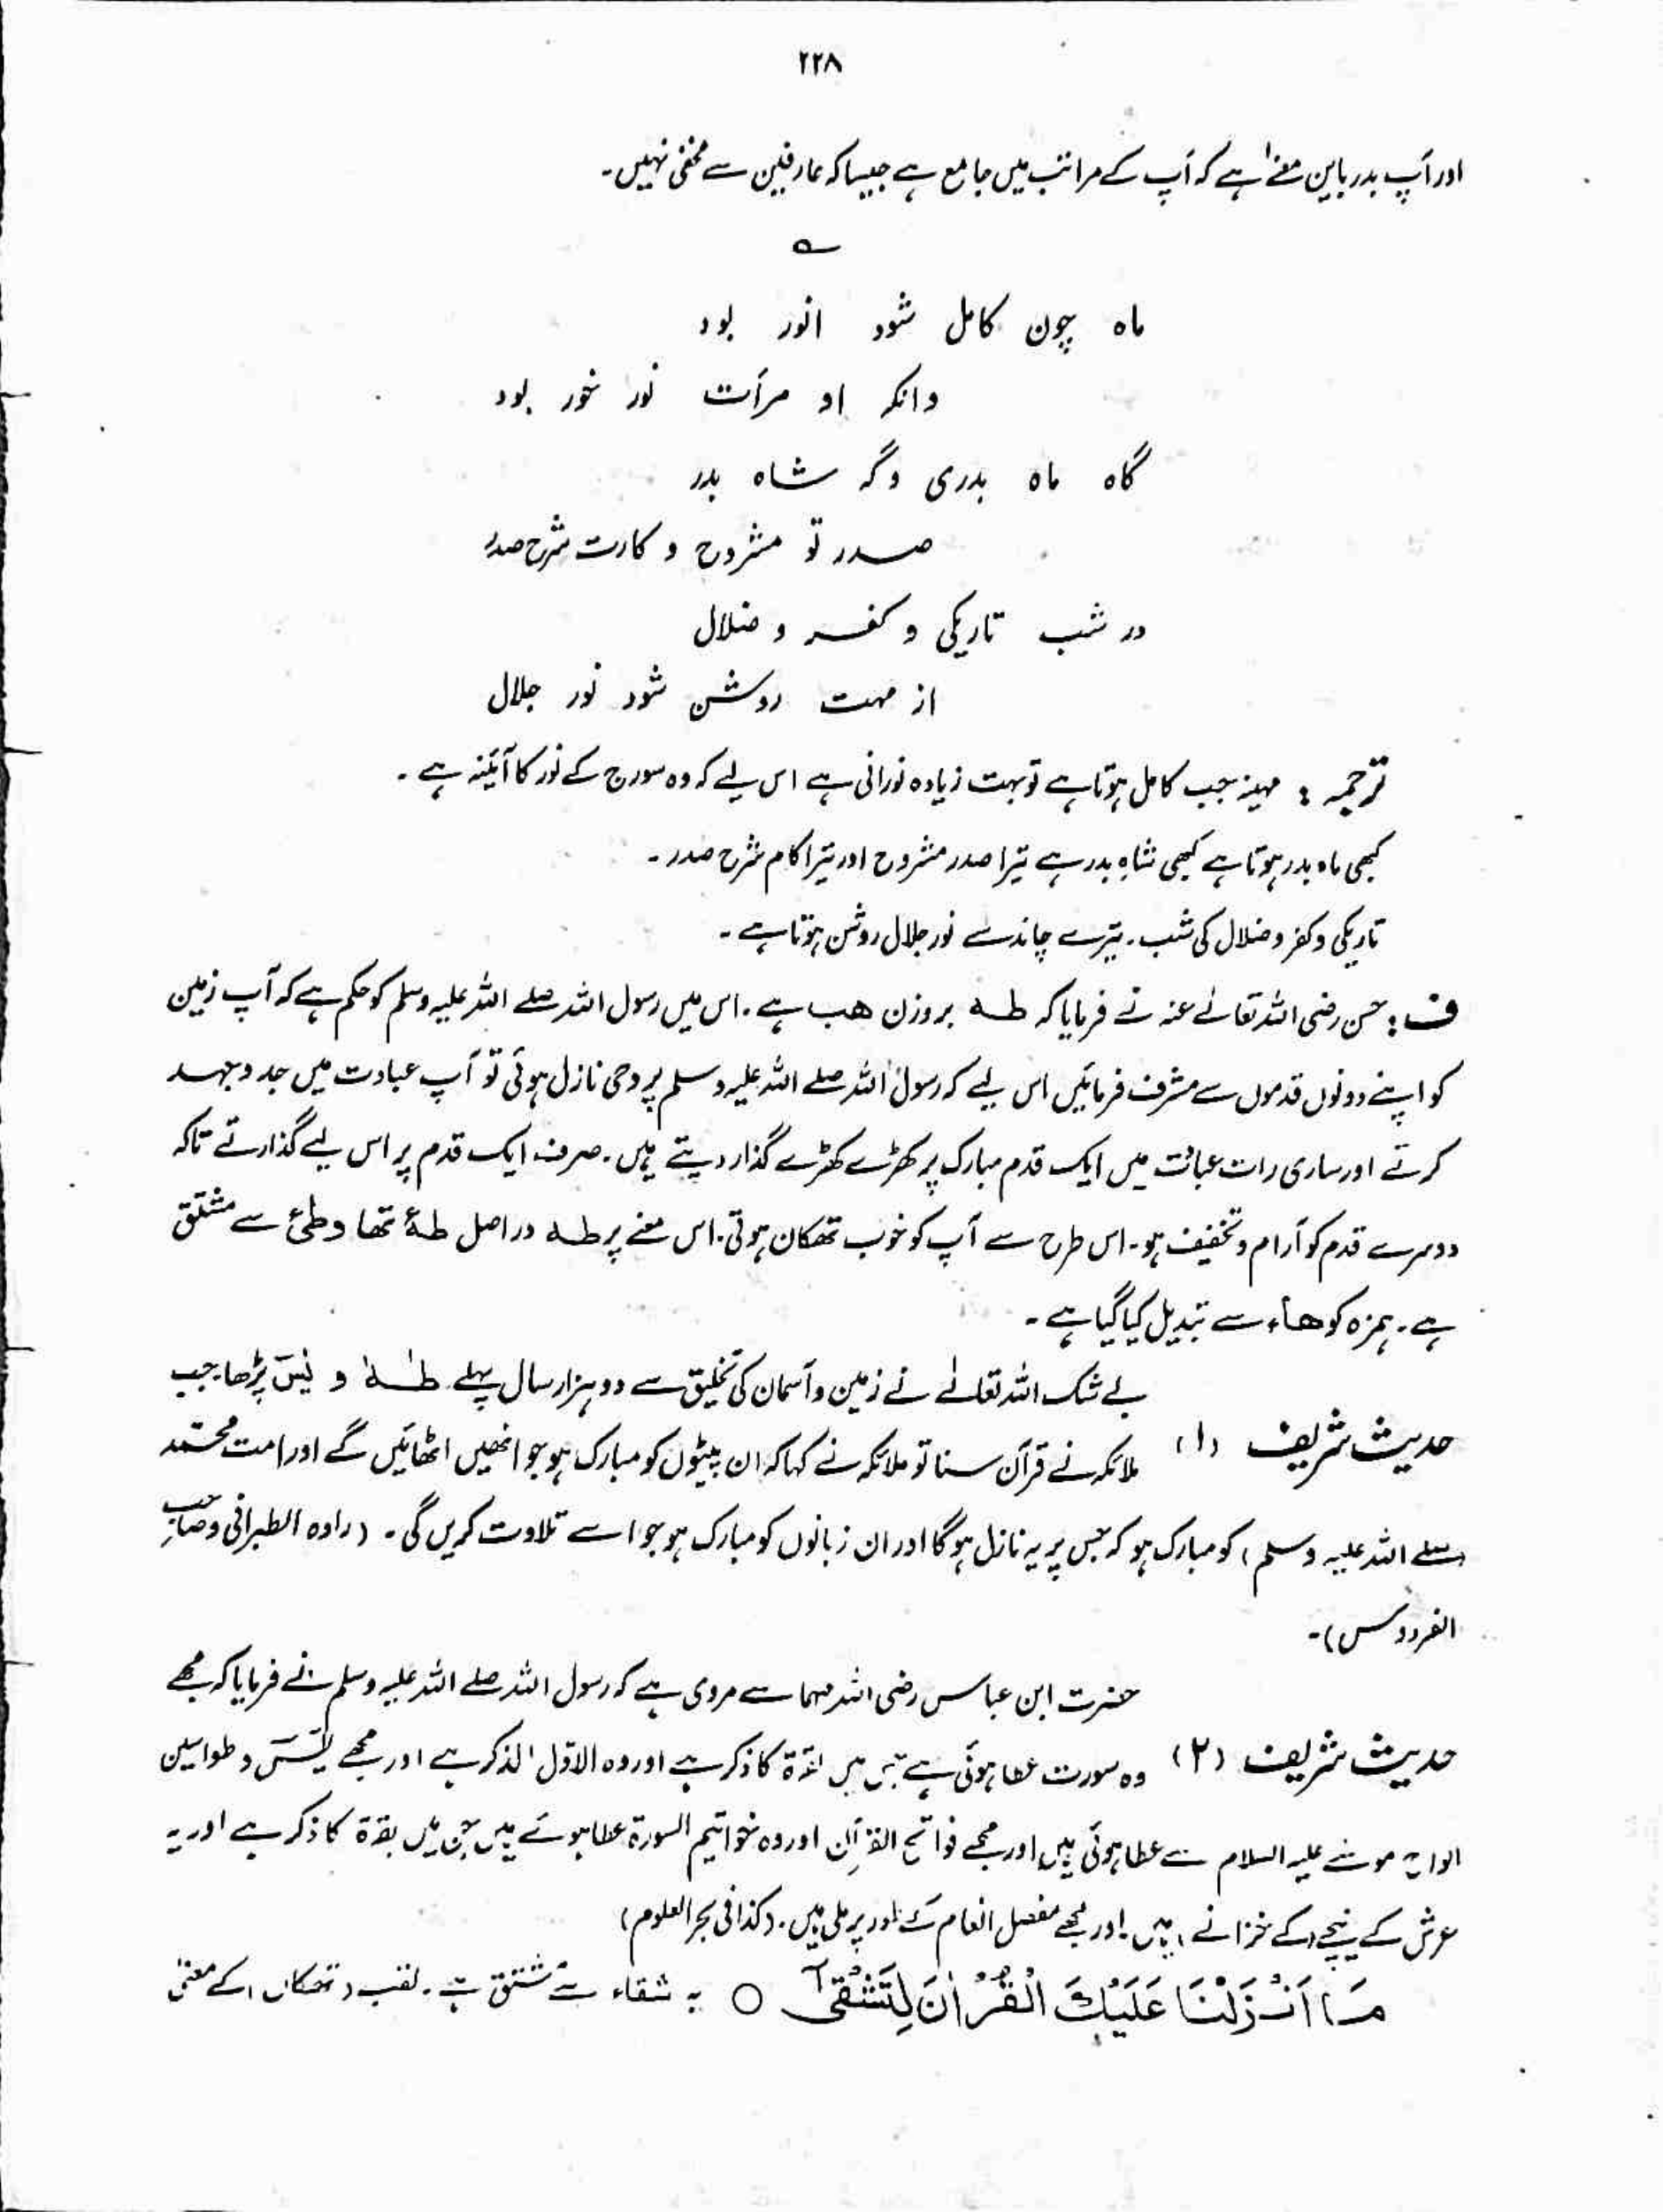 ۲۲۸
اور آپ بدر باین معنےٰ ہے کہ آپ کے مراتب میں جامع ہے جیسا کہ عارفین سے مخفی نہیں۔
ماہ چون کامل شود انور بود
وانکہ او مرآت نور خور بود
گاہ ماہ بدری وگہ شاہ بدر
صدر تو مشروح و کارت شرح صدر
در شب تاریکی و کفر و ضلال
از مہت روشن شود نور جلال
ترجمہ : مہینہ جب کامل ہوتا ہے تو بہت زیادہ نورانی ہے اس لیے کہ وہ سورج کے نور کا آئینہ ہے۔
کبھی ماہ بدر ہوتا ہے کبھی شاہِ بدر ہے تیرا صدر مشروح اور تیرا کام شرح صدر۔
تاریکی و کفر و ضلال کی شب۔ تیرے چاند سے نور جلال روشن ہوتا ہے۔
ف : حسن رضی اللہ تعالےٰ عنہ نے فرمایا کہ طہ بروزن ھب ہے۔ اس میں رسول اللہ صلے اللہ علیہ وسلم کو حکم ہے کہ آپ زمین
کو اپنے دونوں قدموں سے مشرف فرمائیں اس لیے کہ رسول اللہ صلے اللہ علیہ وسلم پر وحی نازل ہوئی تو آپ عبادت میں جد و جہد
کرتے اور ساری رات عبادت میں ایک قدم مبارک پر کھڑے کھڑے گذار دیتے ہیں۔ صرف ایک قدم پر اس لیے گذارتے تاکہ
دوسرے قدم کو آرام و تخفیف ہو۔ اس طرح سے آپ کو خوب تھکان ہوتی۔ اس معنے پر طہ دراصل طۂ تھا وطئ سے مشتق
ہے۔ ہمزہ کو ھاء سے تبدیل کیا گیا ہے۔
بے شک اللہ تعالےٰ نے زمین و آسمان کی تخلیق سے دو ہزار سال پہلے طٰہٰ و یٰسٓ پڑھا۔ جب
حدیث شریف (۱) ملائکہ نے قرآن سنا تو ملائکہ نے کہا کہ ان پیٹوں کو مبارک ہو جو انھیں اٹھائیں گے اور امت محمد
(صلے اللہ علیہ وسلم) کو مبارک ہو کہ جس پر یہ نازل ہوگا اور ان زبانوں کو مبارک ہو جو اسے تلاوت کریں گی۔ (رواہ الطبرانی وصاحب
الفردوس)۔
حضرت ابن عباس رضی اللہ عنہما سے مروی ہے کہ رسول اللہ صلے اللہ علیہ وسلم نے فرمایا کہ مجھے
حدیث شریف (۲) وہ سورت عطا ہوئی ہے جس میں بقرۃ کا ذکر ہے اور وہ الاوّل الذکر ہے اور مجھے یٰسٓ و طواسین
الواح موسےٰ علیہ السلام سے عطا ہوئی ہیں اور مجھے فواتح القرآن اور وہ خواتیم السورۃ عطا ہوئے ہیں جن میں بقرۃ کا ذکر ہے اور یہ
عرش کے نیچے کے خزانے ہیں۔ اور مجھے مفصل انعام کے طور پر ملی ہیں۔ (کذافی بحر العلوم)
مَآ اَنْزَلْنَا عَلَيْكَ الْقُرْاٰنَ لِتَشْقٰٓى ○ یہ شقاء سے مشتق ہے۔ لقب (تھکان) کے معنی